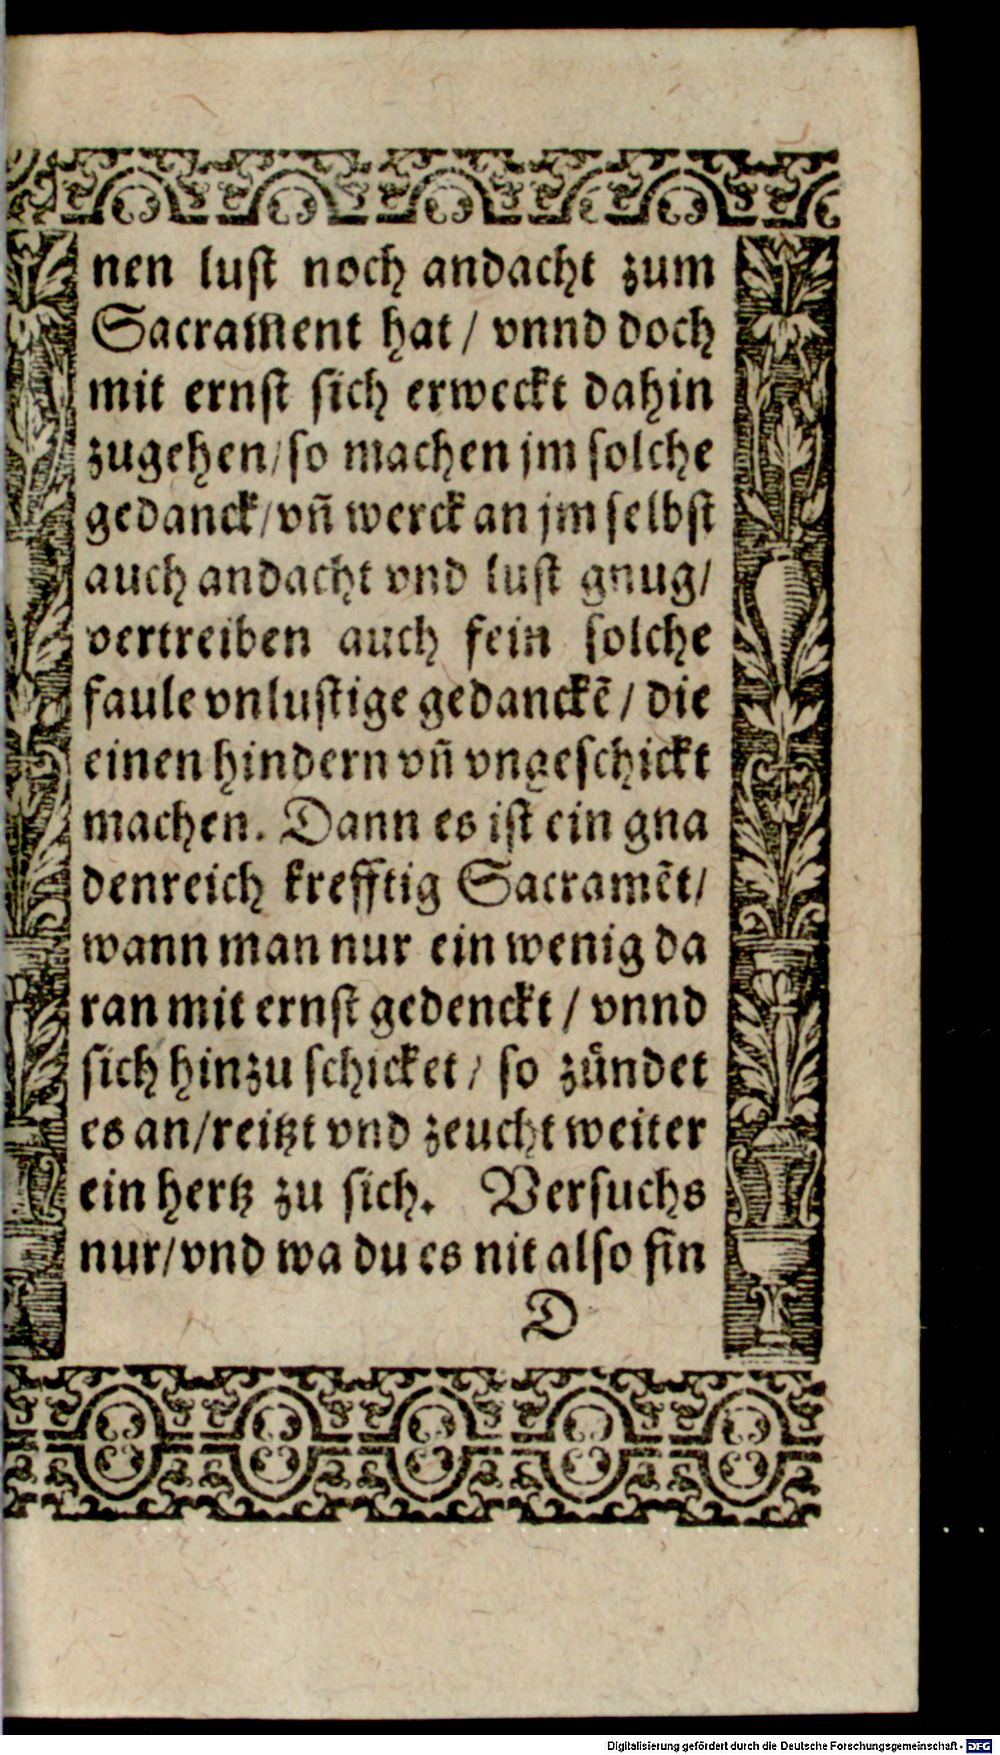 nen lust noch andacht zum
Sacrament hat / vnnd doch
mit ernst sich erweckt dahin
zugehen / so machen jm solche
gedanck / vñ werck an jm selbst
auch andacht vnd lust gnug /
vertreiben auch fein solche
faule vnlustige gedanckẽ / die
einen hindern vñ vngeschickt
machen. Dann es ist ein gna
denreich krefftig Sacramẽt /
wann man nur ein wenig da
ran mit ernst gedenckt / vnnd
sich hinzu schicket / so zündet
es an / reitzt vnd zeucht weiter
ein hertz zu sich. Versuchs
nur / vnd wa du es nit also fin
D
Digitalisierung gefördert durch die Deutsche Forschungsgemeinschaft - DFG